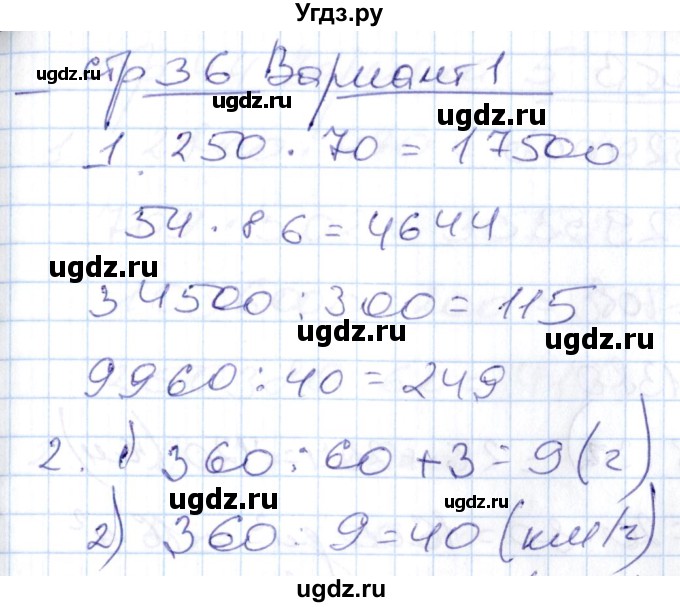 Угдз.ру
стр 36 Вариант 1
ugdz.ru
ugdz.ru
ugdz.ru
1. 250 · 70 = 17500
54 · 86 = 4644
ugdz.ru
34500 : 300 = 115
ugdz.ru
ugdz.ru
9960 : 40 = 249
2. 1) 360 : 60 + 3 = 9 (г)
ugdz.ru
ugdz.ru
2) 360 : 9 = 40 (км/г)
ugdz.ru